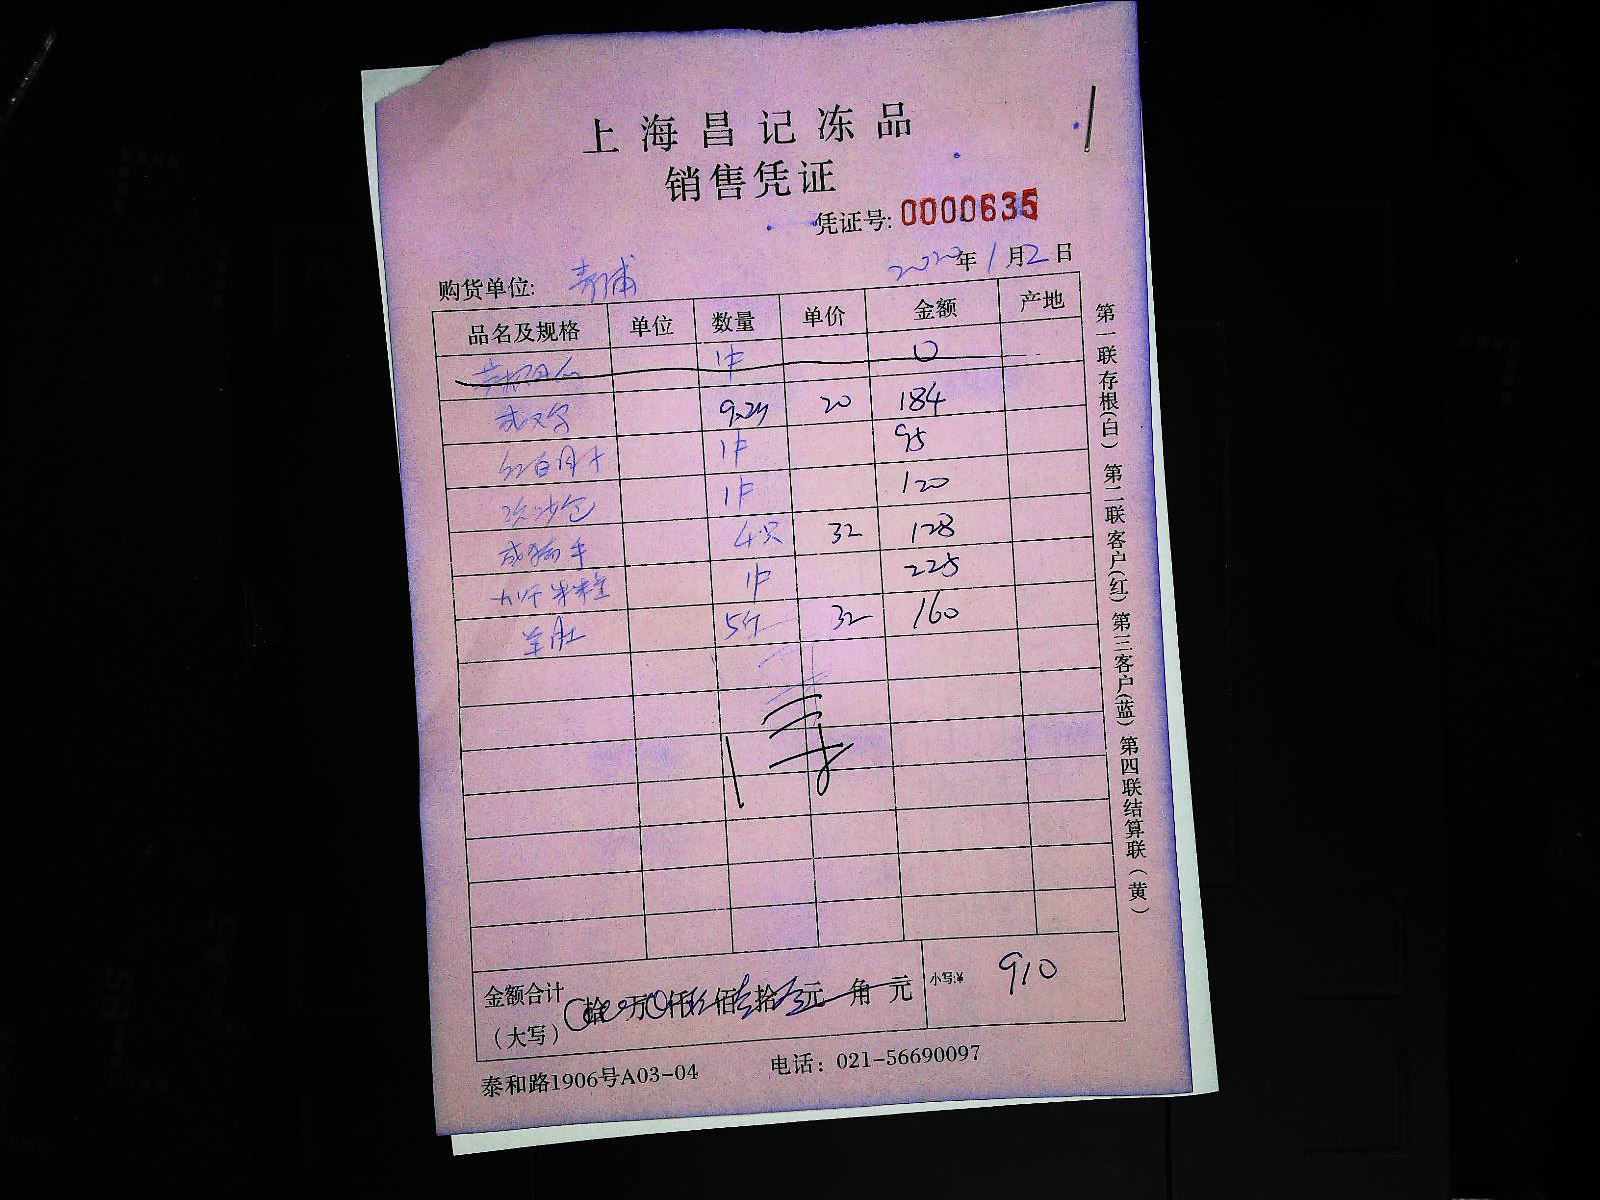 上海昌记冻品
销售凭证
凭证号: 0000635
2020年1月2日
购货单位: 青浦
品名及规格 单位 数量 单价 金额 产地
1件 0
9.2斤 20 184
1件 95
1件 120
4只 32 128
1件 225
羊肚 5斤 32 160
金额合计 拾 万 仟 佰 拾 元 角 元 小写:¥ 910
(大写)
泰和路1906号A03-04 电话: 021-56690097
第一联存根(白) 第二联客户(红) 第三客户(蓝) 第四联结算联(黄)